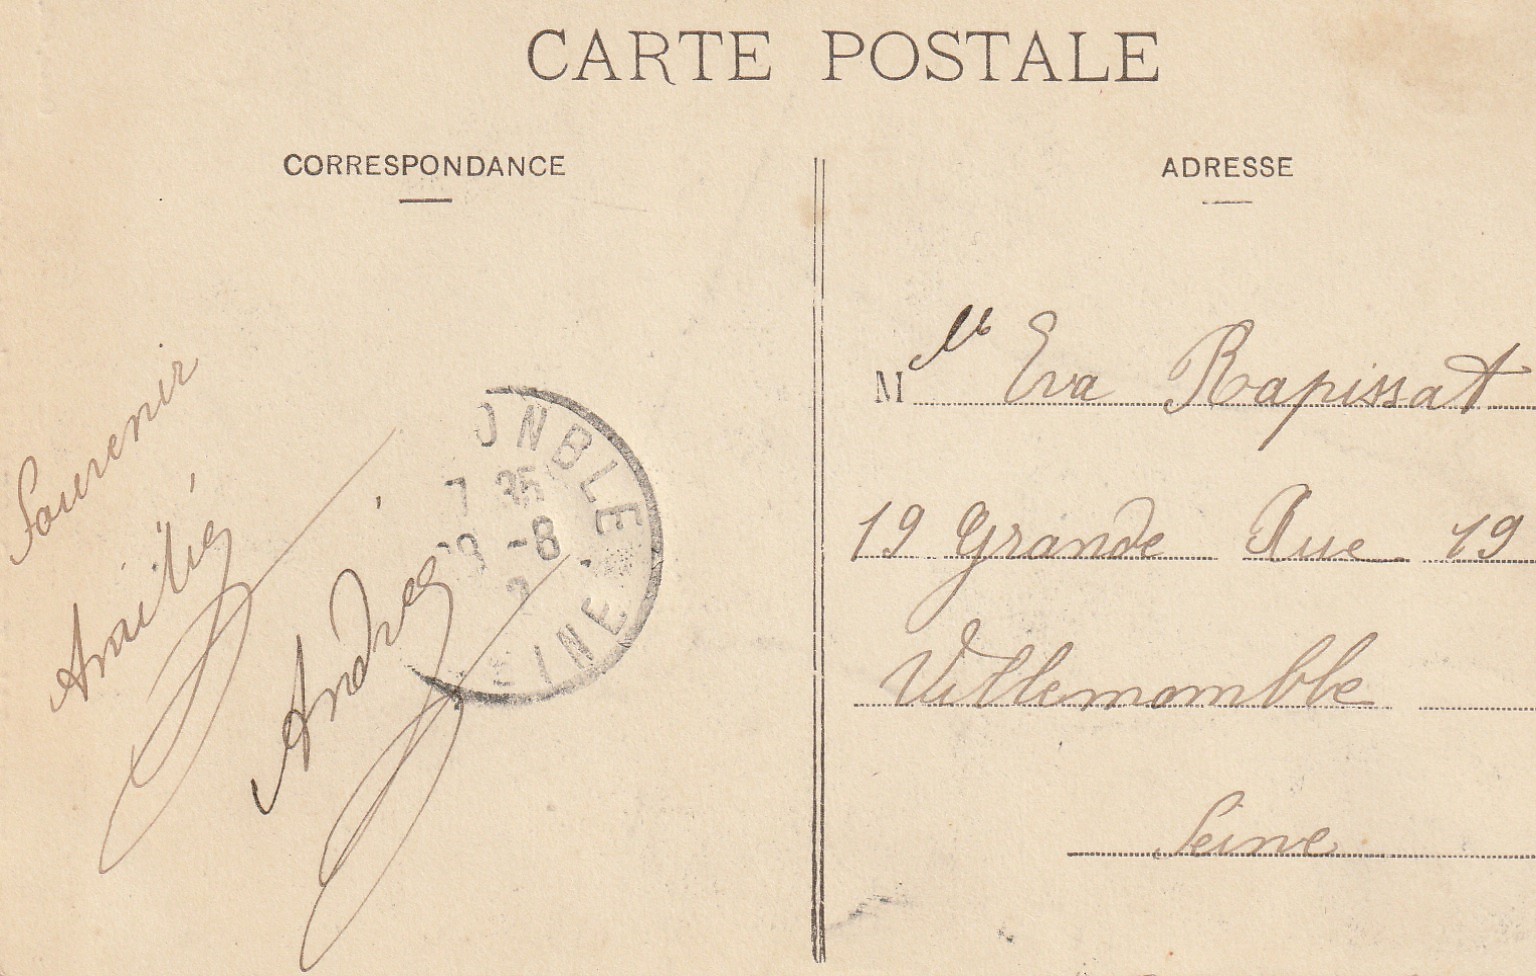 CARTE POSTALE
CORRESPONDANCE
ADRESSE
Souvenir
Amitié
André
ONBLE
7 35
-8
SEINE
Mlle Eva Rapissat
19 Grande Rue 19
Villemomble
Seine